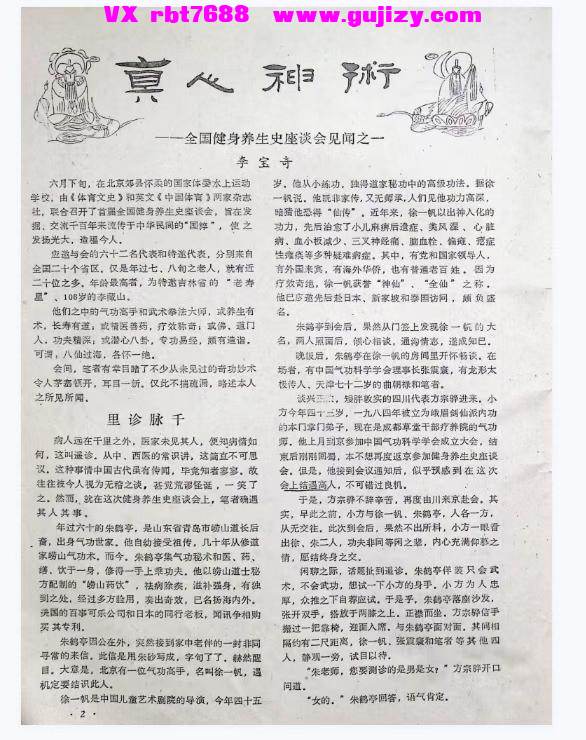 VX rbt7688 www.gujizy.com
真心神术
——全国健身养生史座谈会见闻之一
李宝奇
六月下旬，在北京郊县怀柔的国家体委水上运动
学校，由《体育文史》和英文《中国体育》两家杂志
社，联合召开了首届全国健身养生史座谈会，旨在发
掘、交流千百年来流传于中华民间的“国粹”，使之
发扬光大，造福今人。
应邀与会的六十二名代表和特邀代表，分别来自
全国二十个省区。仅是年过七、八旬之老人，就有近
二十位之多。年龄最高者，为特邀吉林省的“老寿
星”、108岁的李蔵山。
他们之中的气功高手和武术拳法大师，或养生有
术，长寿有道；或精医善药，疗效称奇；或佛、道门
人，功夫精深；或潜心八卦，专功易经，颇有造诣。
可谓，八仙过海，各怀一绝。
会间，笔者有幸目睹了不少从未见过的奇功妙术
令人茅塞顿开，耳目一新。仅此不揣疏漏，略述本人
之所见所闻。
里诊脉千
病人远在千里之外，医家未见其人，便知病情如
何，这叫遥诊。从中、西医的常识讲，这简直不可思
议。这种事情中国古代虽有传闻，毕竟知者寥寥，故
往往被今人视为无稽之谈，甚觉荒谬怪诞，一笑了
之。然而，就在这次健身养生史座谈会上，笔者确遇
其人其事。
年过六十的朱鹤亭，是山东省青岛市崂山道长后
裔，出身气功世家。他自幼接受祖传，几十年从修道
家崂山气功术。而今，朱鹤亭集气功秘术和医、药、
膳、饮于一身，修得一手上乘功夫。他以崂山道士秘
方配制的“崂山药饮”，祛病除疾，滋补强身，有独
到之处，经过多方验用，奏出奇效，已名扬海内外。
美国的百事可乐公司和日本的同行老板，闻讯争相购
买其专利。
朱鹤亭因公在外，突然接到家中老伴的一封非同
寻常的来信。此信是用朱砂写成，字句了了，赫然醒
目。大意是，北京有一位气功高手，名叫徐一帆，遇
机定要结识此人。
徐一帆是中国儿童艺术剧院的导演，今年四十五
· 2 ·
岁。他从小练功，独得道家秘功中的高级功法。据徐
一帆说，他既非家传，又无师承，人们见他功力高深，
暗猜他恐得“仙传”。近年来，徐一帆以出神入化的
功力，先后治愈了小儿麻痹后遗症、类风湿、心脏
病、血小板减少、三叉神经痛、脑血栓、偏瘫、癔症
性瘫痪等多种疑难病症。其中，有党和国家领导人，
有外国来宾，有海外华侨，也有普通老百姓。因为
疗效奇绝，徐一帆获誉“神仙”、“全仙”之称。
他已应邀先后赴日本、新家坡和泰国访问，颇负盛
名。
朱鹤亭到会后，果然从门签上发现徐一帆的大
名，两人照面后，倾心相谈，通沟情志，遂成知己。
晚饭后，朱鹤亭在徐一帆的房间里开怀畅谈。在
场者，有中国气功科学学会理事长张震寰，有龙形太
极传人、天津七十二岁的曲朝禄和笔者。
谈兴正 ，矮胖敦实的四川代表方宗骅进来。小
方今年四十三岁，一九八四年被立为峨眉剑仙派内功
的本门掌门弟子，现在是成都草堂干部疗养院的气功
师。他上月到京参加中国气功科学学会成立大会，结
束后刚刚回蜀，本不想再度返京参加健身养生史座谈
会，但是，他接到会议通知后，似乎预感到在这次
会上结遇高人，不可错过良机。
于是，方宗骅不辞辛苦，再度由川来京赴会。其
实，早此之前，小方与徐一帆、朱鹤亭，人各一方，
从无交往。此次到会后，果然不出所料，小方一眼看
出徐、朱二人，功夫非同等闲之辈，内心充满仰慕之
情，愿结终身之交。
闲聊之际，话题扯到遥诊。朱鹤亭佯装只会武
术，不会武功，想试一下小方的身手。小方为人忠
厚，众推之下自荐应试。于是乎，朱鹤亭落座沙发，
张开双手，搭放于两膝之上，正襟而坐。方宗骅信手
搬过一把靠椅，迎面入席。与朱鹤亭面对面，其间相
隔约有二尺距离，徐一帆、张震寰和笔者等其他四
人，静观一旁，试目以待。
“朱老师，您要测诊的是男是女？”方宗骅开口
问道。
“女的。”朱鹤亭回答，语气肯定。